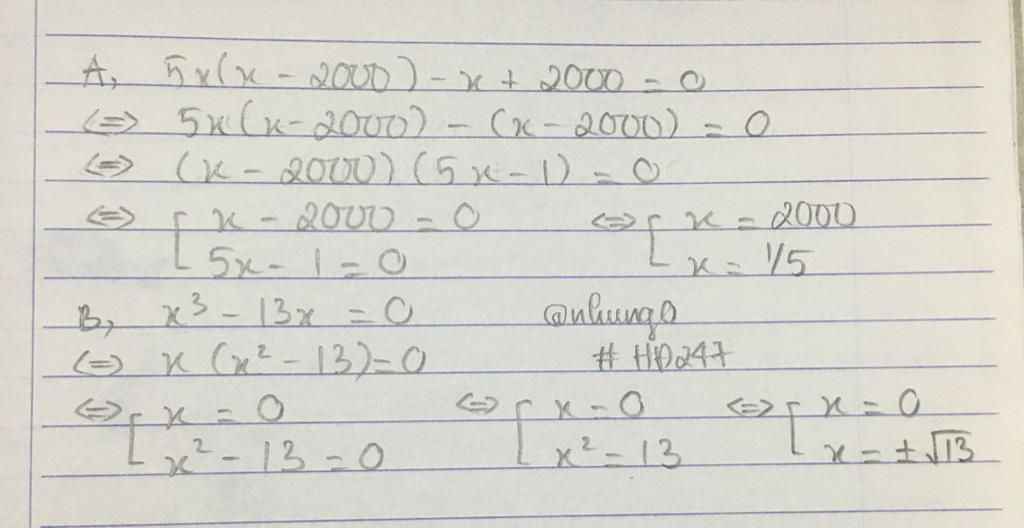 A, 5x(x - 2000) - x + 2000 = 0
<=> 5x(x - 2000) - (x - 2000) = 0
<=> (x - 2000)(5x - 1) = 0
<=> [ x - 2000 = 0 <=> [ x = 2000
5x - 1 = 0 x = 1/5
B, x³ - 13x = 0 @nhung0
<=> x (x² - 13) = 0 # HD247
<=> [ x = 0 <=> [ x = 0 <=> [ x = 0
x² - 13 = 0 x² = 13 x = ±√13